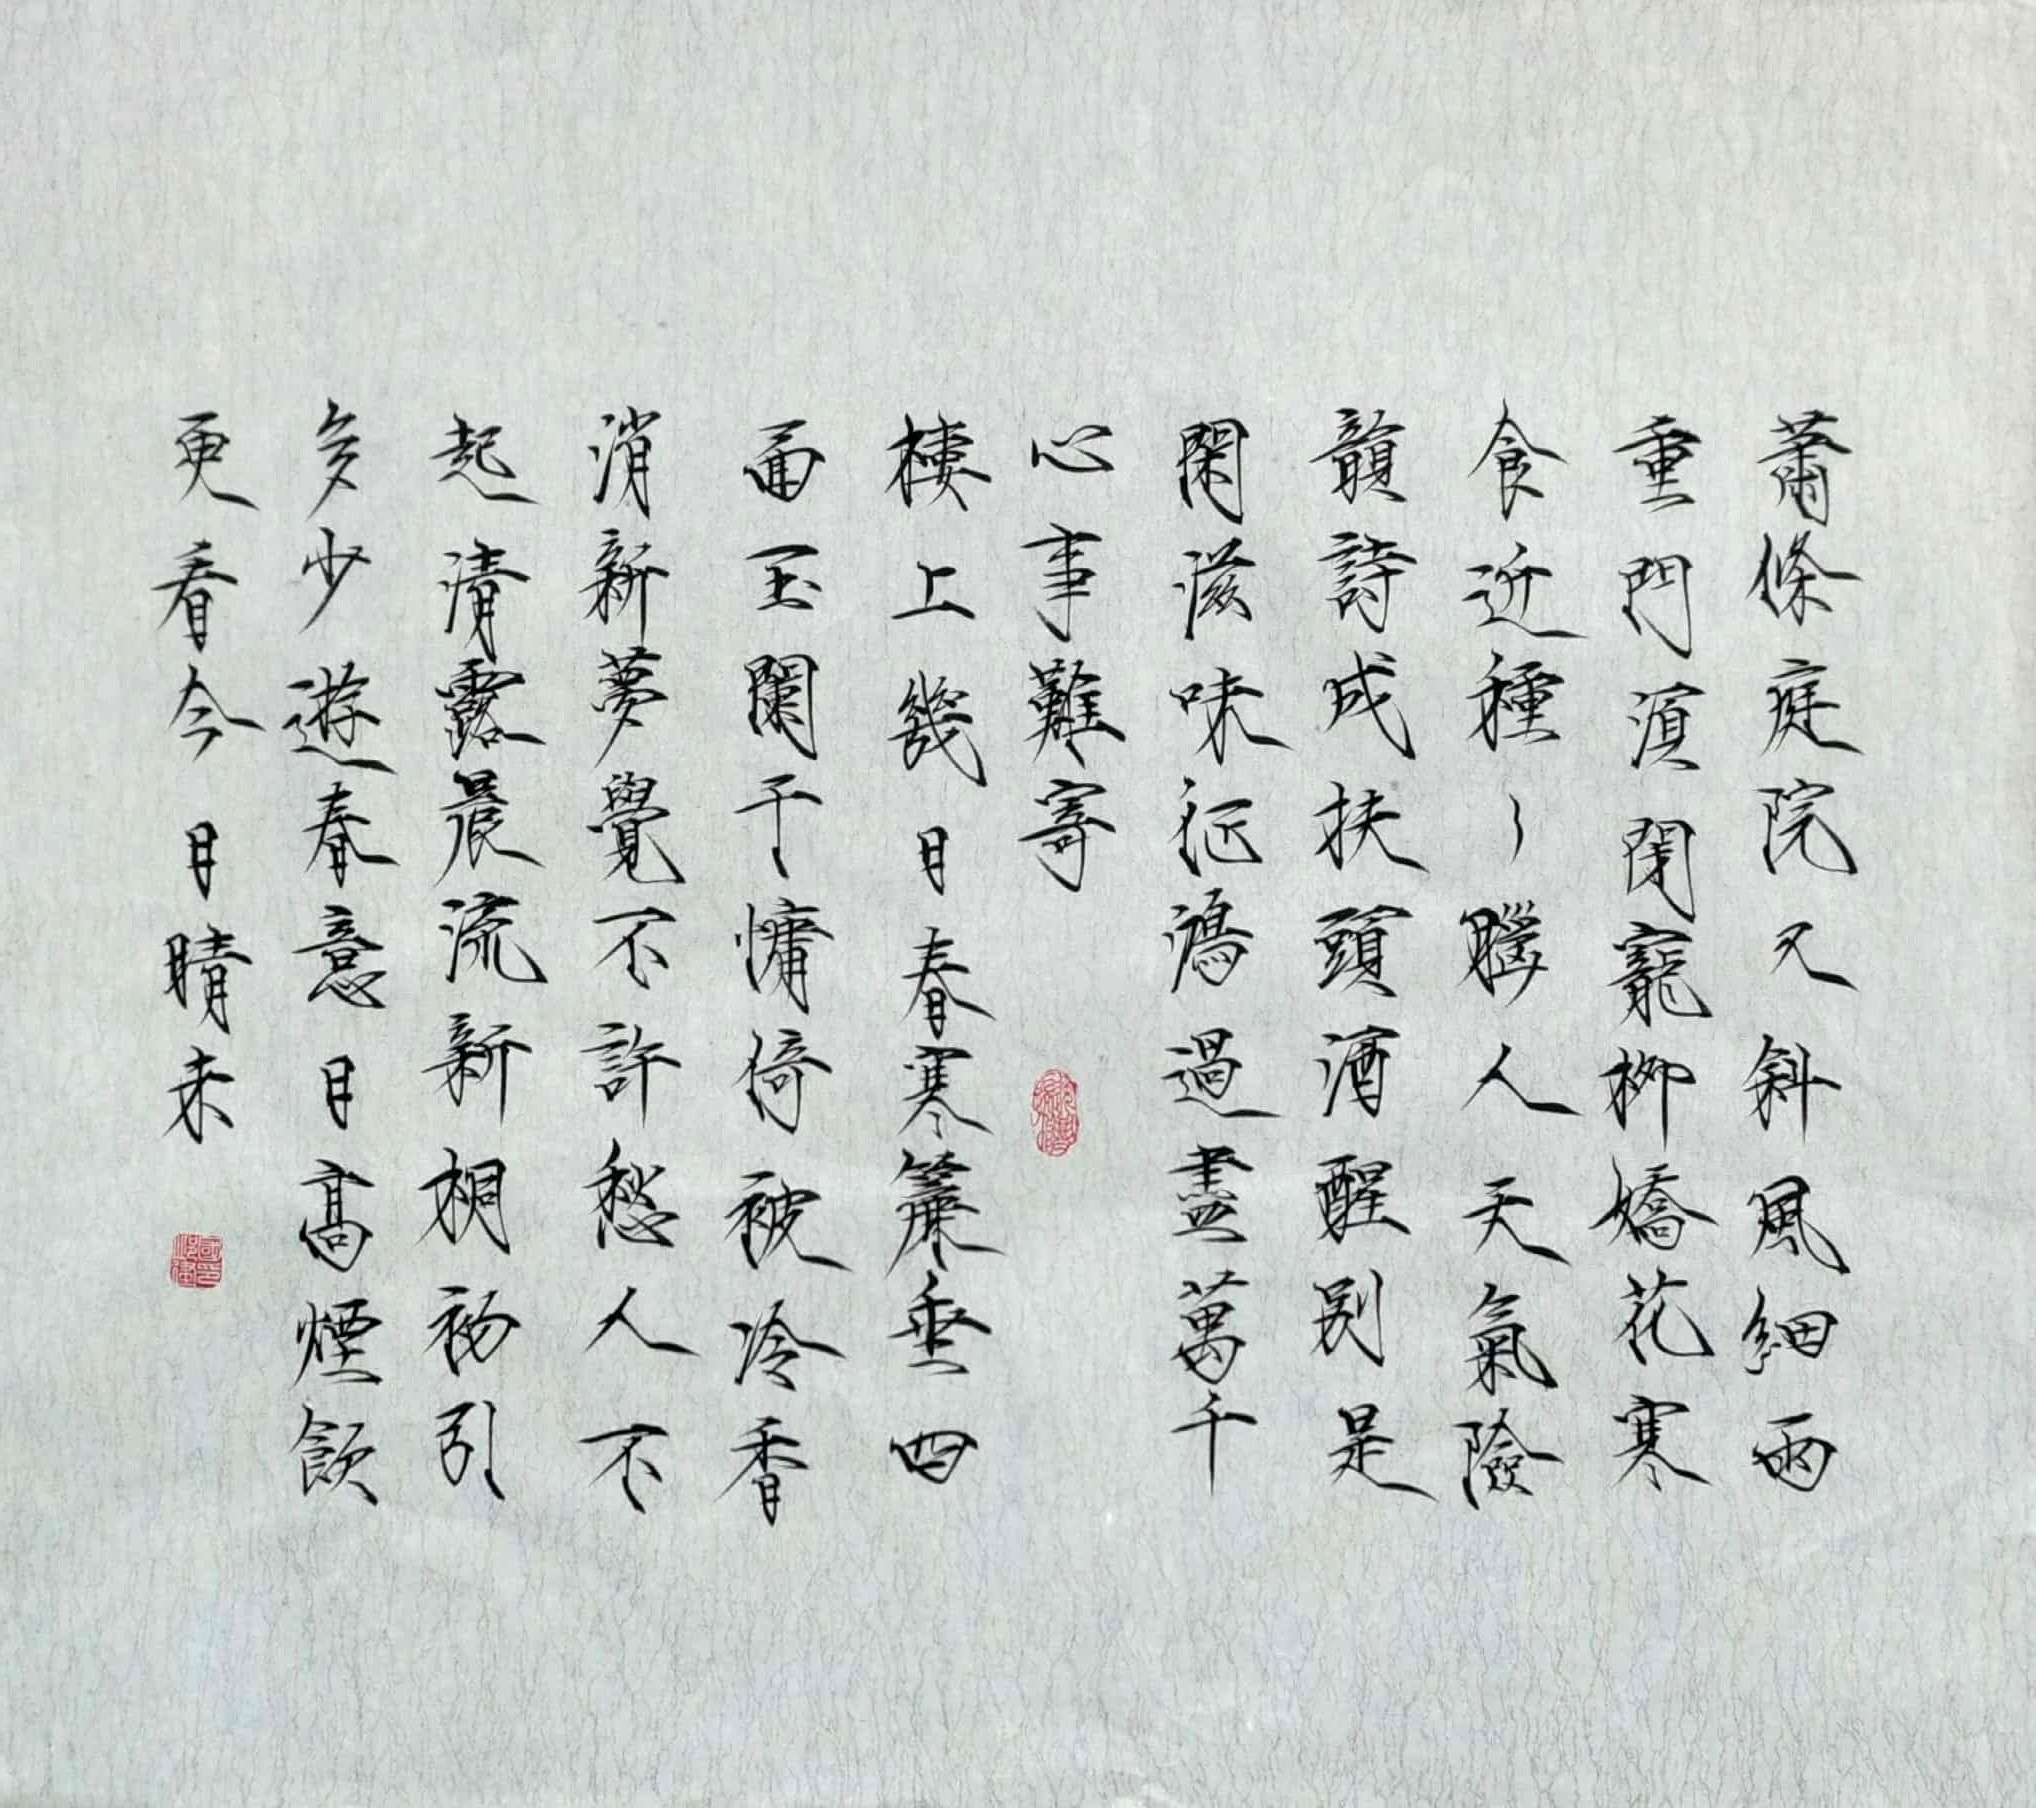 蕭條庭院又斜風細雨
重門須閉寵柳嬌花寒
食近種〻惱人天氣險
韻詩成扶頭酒醒別是
閑滋味征鴻過盡萬千
心事難寄
樓上幾日春寒簾垂四
面玉闌干慵倚被冷香
消新夢覺不許愁人不
起清露晨流新桐初引
多少遊春意日高煙斂
更看今日晴未